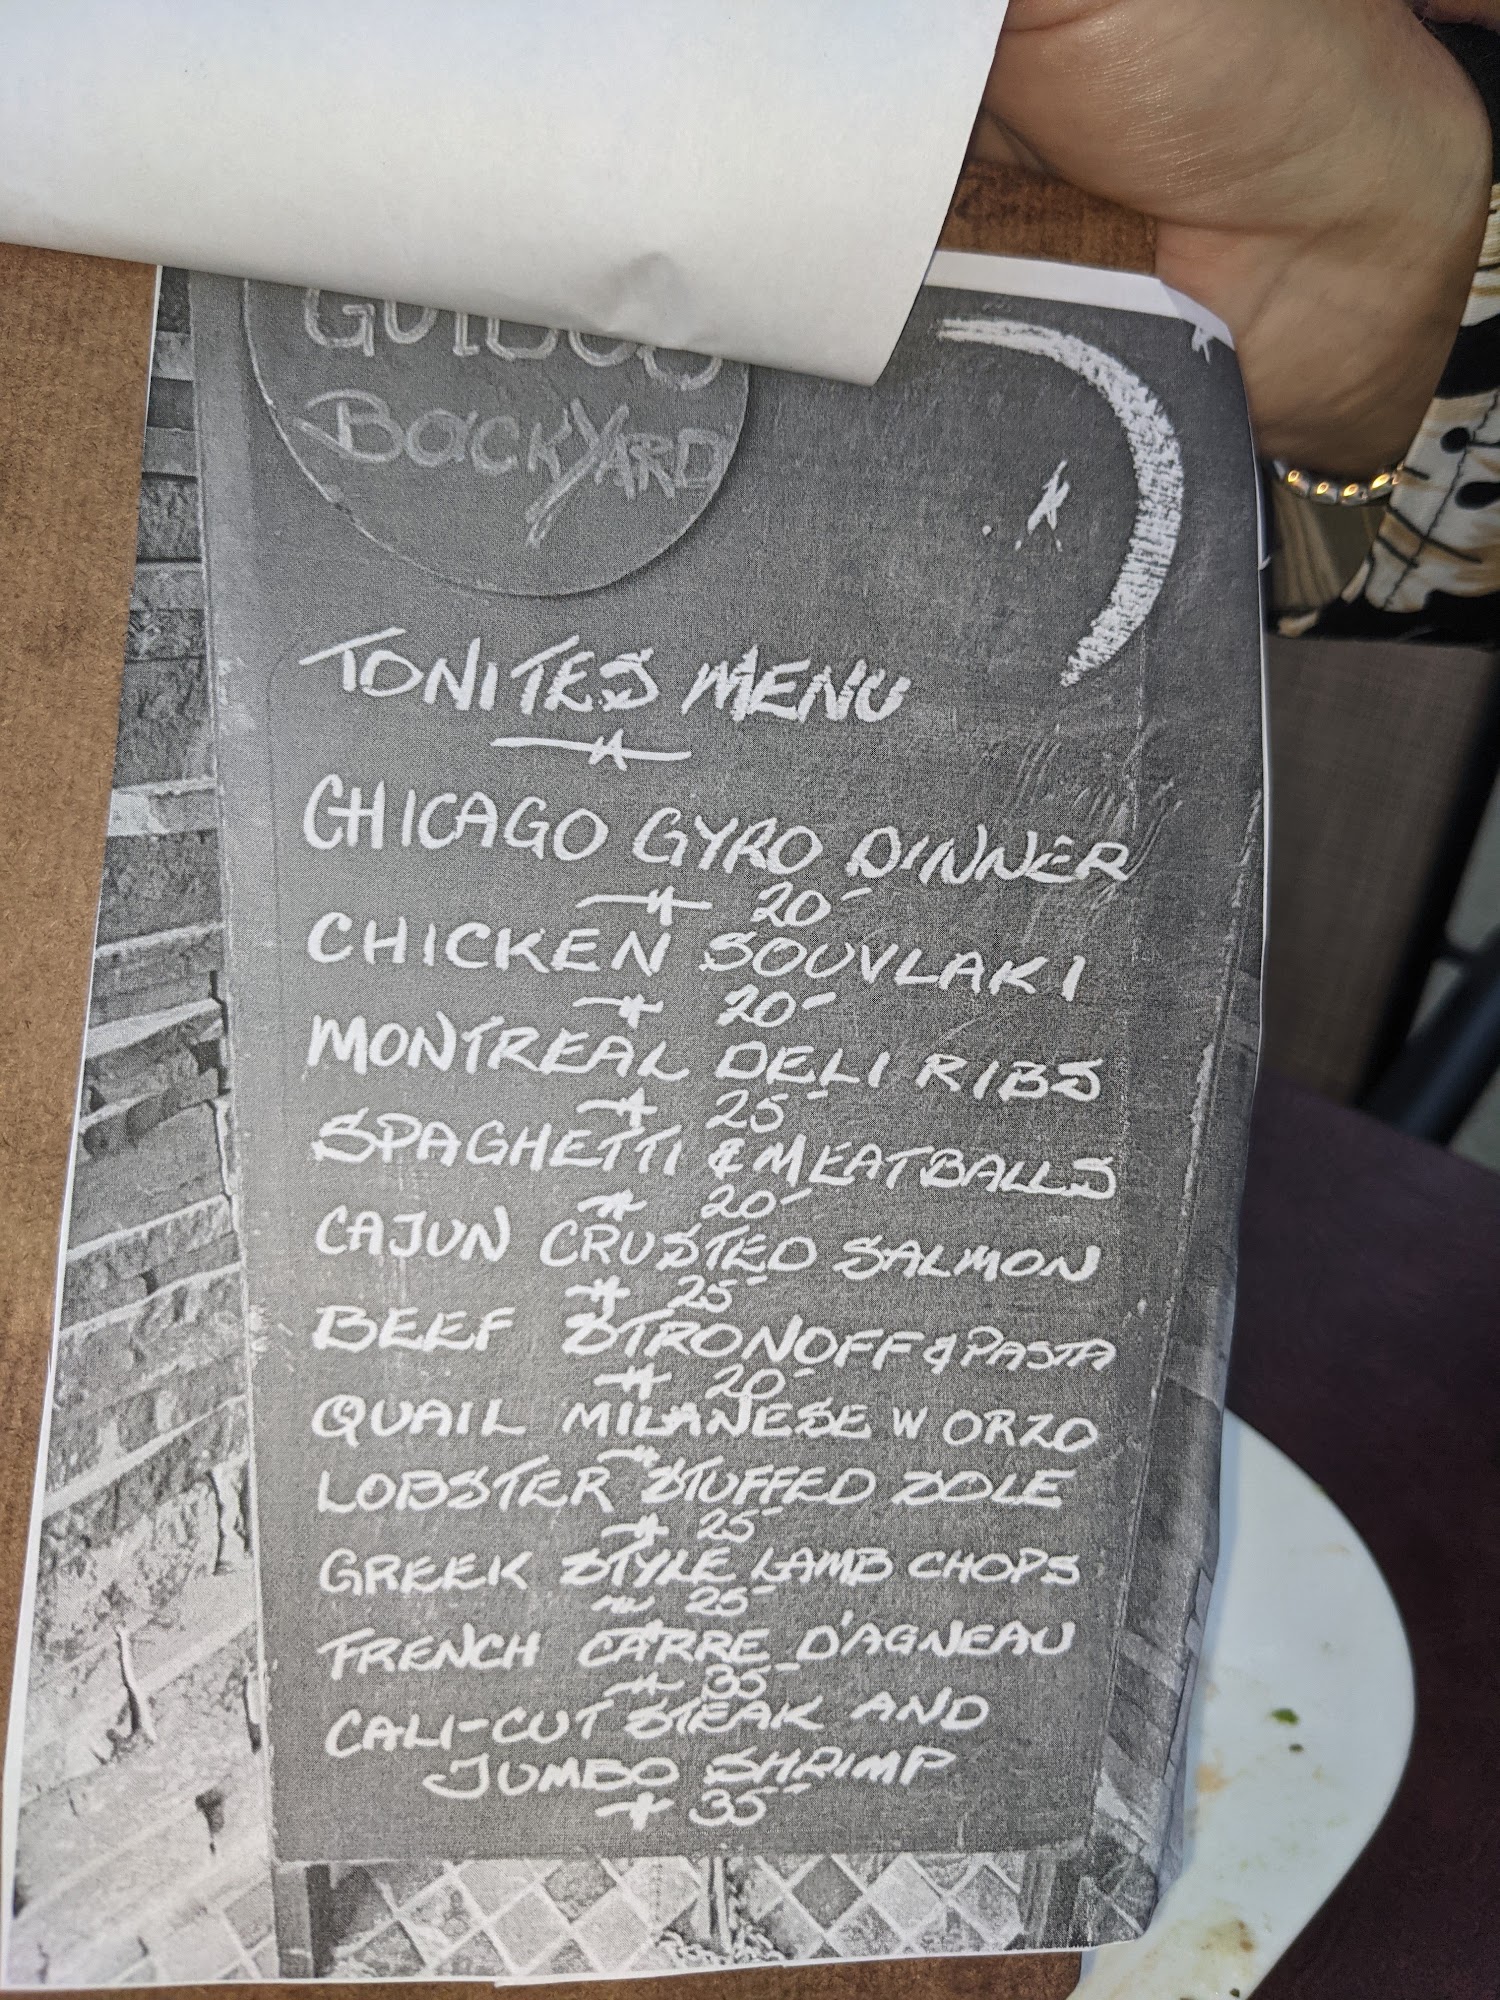 BACKYARD
TONITES MENU
CHICAGO GYRO DINNER
20-
CHICKEN SOUVLAKI
20-
MONTREAL DELI RIBS
25-
SPAGHETTI & MEATBALLS
20-
CAJUN CRUSTED SALMON
25-
BEEF STRONOFF & PASTA
20-
QUAIL MILANESE W ORZO
LOBSTER STUFFED SOLE
25-
GREEK STYLE LAMB CHOPS
25-
FRENCH CARRE D'AGNEAU
35-
CALI-CUT STEAK AND
JUMBO SHRIMP
35-